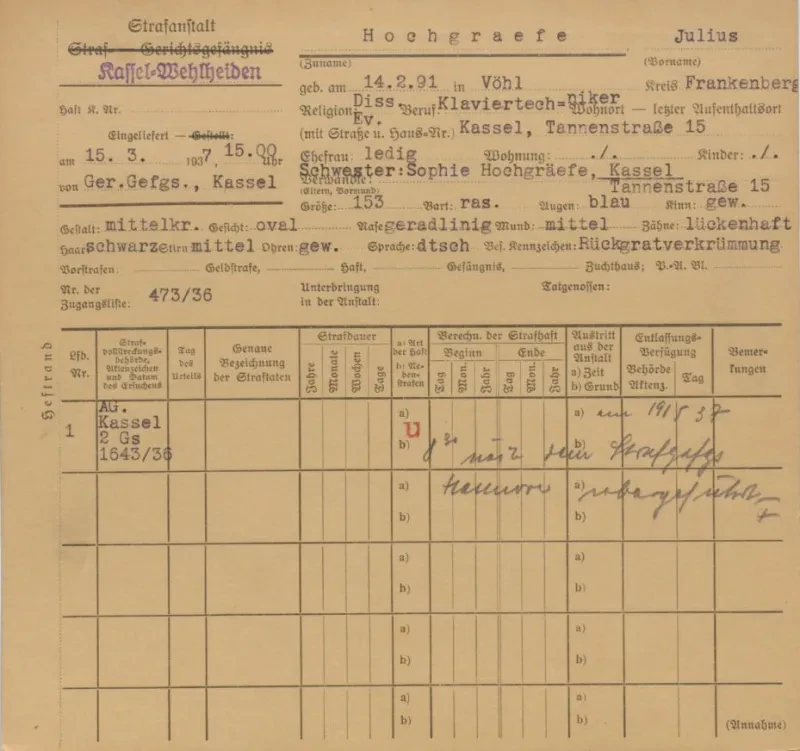 Strafanstalt
Straf- Gerichtsgefängnis
Kassel-Wehlheiden
Haft K. Nr.
Eingeliefert — Gestellt:
am 15. 3. 1937, 15.00 Uhr
von Ger.Gefgs., Kassel
Hochgraefe Julius
(Zuname) (Vorname)
geb. am 14.2.91 in Vöhl Kreis Frankenberg
Religion: Diss. Ev. Beruf: Klaviertech=niker Wohnort — letzter Aufenthaltsort
(mit Straße u. Haus-Nr.) Kassel, Tannenstraße 15
Ehefrau: ledig Wohnung: ./. Kinder: ./.
Schwester: Sophie Hochgräefe, Kassel
Verwandte:
(Eltern, Vormund) Tannenstraße 15
Größe: 153 Bart: ras. Augen: blau Kinn: gew.
Gestalt: mittelkr. Gesicht: oval Nase geradlinig Mund: mittel Zähne: lückenhaft
Haar schwarz Stirn mittel Ohren: gew. Sprache: dtsch Bes. Kennzeichen: Rückgratverkrümmung
Vorstrafen: Geldstrafe, Haft, Gefängnis, Zuchthaus; P.-A. Bl.
Nr. der Zugangsliste: 473/36
Unterbringung in der Anstalt:
Tatgenossen:
Heftrand
Lfd. Nr.
Straf-vollstreckungs-behörde, Aktenzeichen und Datum des Ersuchens
Tag des Urteils
Genaue Bezeichnung der Straftaten
Strafdauer
Jahre Monate Wochen Tage
a) Art der Haft
b) Ne-ben-strafen
Berechn. der Strafhaft
Beginn Ende
Tag Mon. Jahr Tag Mon. Jahr
Austritt aus der Anstalt
a) Zeit
b) Grund
Entlassungs-Verfügung
Behörde Aktenz. Tag
Bemer-kungen
1
AG.
Kassel
2 Gs
1643/36
a) U a) am 37
b) b) dem Strafgefgs
a) Hannover a) übergeführt
b) b)
a)
b) b)
a) a)
b) b)
a) a)
b) b)
(Annahme)